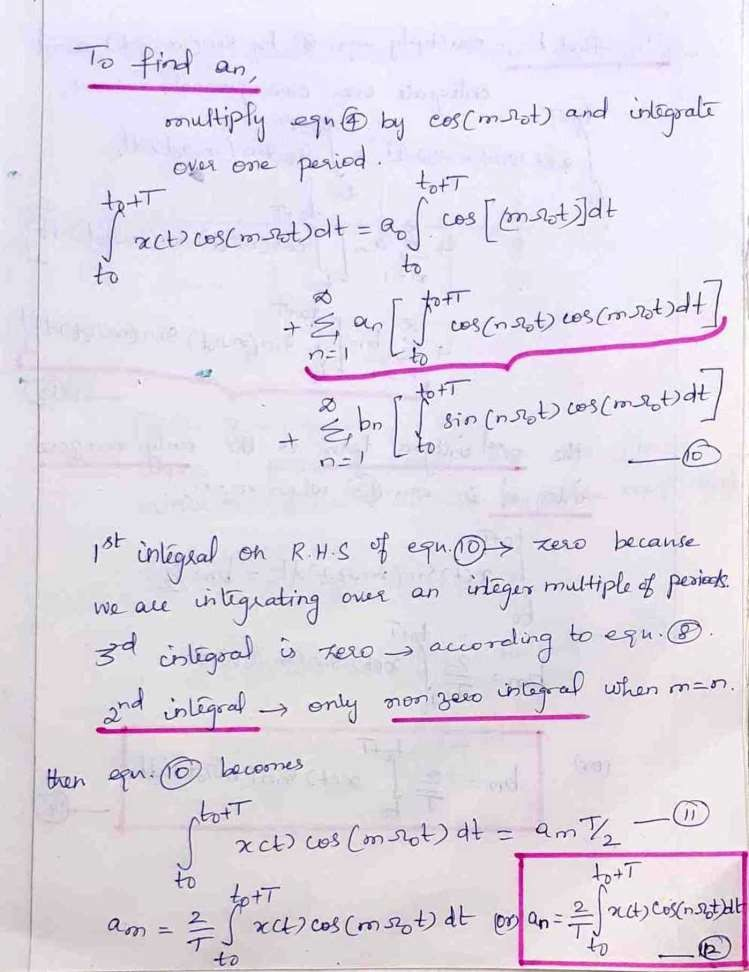 To find an,
multiply eqn ④ by cos(mΩ₀t) and integrate
over one period.
∫_{t₀}^{t₀+T} x(t) cos(mΩ₀t) dt = a₀ ∫_{t₀}^{t₀+T} cos[(mΩ₀t)] dt
+ Σ_{n=1}^{∞} an [∫_{t₀}^{t₀+T} cos(nΩ₀t) cos(mΩ₀t) dt]
+ Σ_{n=1}^{∞} bn [∫_{t₀}^{t₀+T} sin(nΩ₀t) cos(mΩ₀t) dt]
— ⑩
1st integral on R.H.S of equ. ⑩ → zero because
we are integrating over an integer multiple of periods.
3rd integral is zero → according to equ. ⑧.
2nd integral → only non zero integral when m=n.
then equ. ⑩ becomes
∫_{t₀}^{t₀+T} x(t) cos(mΩ₀t) dt = am T/2 — ⑪
am = 2/T ∫_{t₀}^{t₀+T} x(t) cos(mΩ₀t) dt (or) an = 2/T ∫_{t₀}^{t₀+T} x(t) cos(nΩ₀t) dt
— ⑫